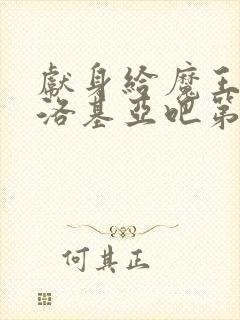 獻身給魔王
洛基亞吧第
何其正